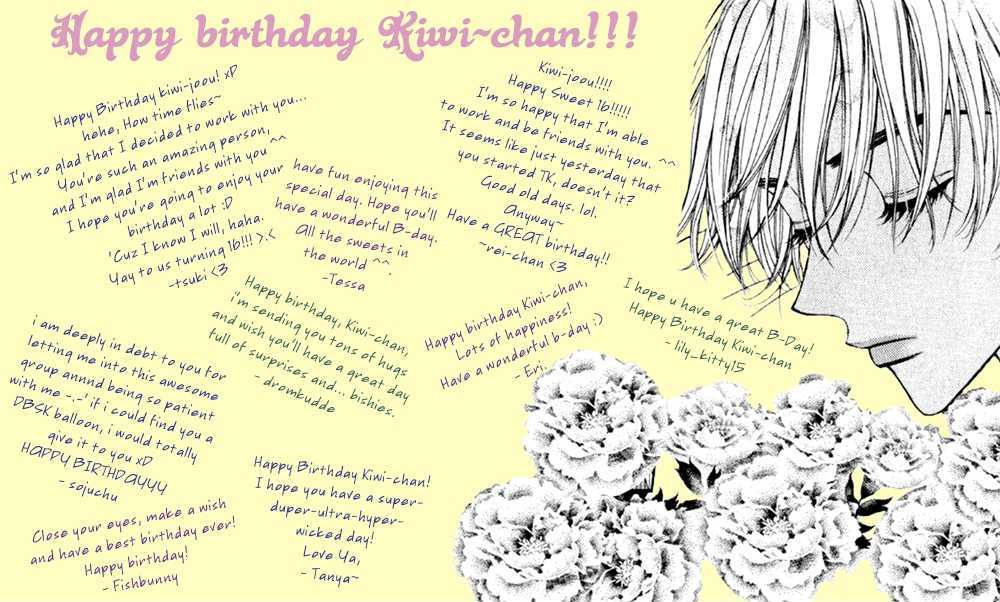 Happy birthday Kiwi~chan!!!
Happy Birthday kiwi-joou! xD
hehe, How time flies~
I'm so glad that I decided to work with you...
You're such an amazing person,
and I'm glad I'm friends with you ^^
I hope you're going to enjoy your
birthday a lot :D
'Cuz I know I will, haha.
Yay to us turning 16!!! >.<
-tsuki <3
Kiwi-joou!!!!
Happy Sweet 16!!!!!
I'm so happy that I'm able
to work and be friends with you. ^^
It seems like just yesterday that
you started TK, doesn't it?
Good old days. lol.
Anyway~
Have a GREAT birthday!!
~rei-chan <3
have fun enjoying this
special day. Hope you'll
have a wonderful B-day.
All the sweets in
the world ^^.
-Tessa
Happy birthday, Kiwi-chan,
i'm sending you tons of hugs
and wish you'll have a great day
full of surprises and... bishies.
- dromkudde
Happy birthday Kiwi-chan,
Lots of happiness!
Have a wonderful b-day :)
- Eri.
I hope u have a great B-Day!
Happy Birthday Kiwi-chan
- lily_kitty15
i am deeply in debt to you for
letting me into this awesome
group annnd being so patient
with me -.-' if i could find you a
DBSK balloon, i would totally
give it to you xD
HAPPY BIRTHDAYYY
- sojuchu
Happy Birthday Kiwi-chan!
I hope you have a super-
duper-ultra-hyper-
wicked day!
Love Ya,
- Tanya~
Close your eyes, make a wish
and have a best birthday ever!
Happy birthday!
- Fishbunny